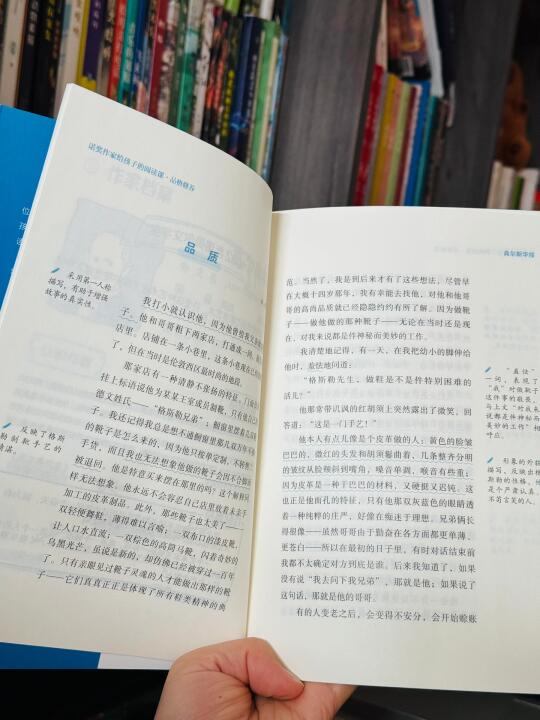 诺奖作家给孩子的阅读课·品格修养
品 质
采用第一人称
描写，有助于增强
故事的真实性。
我打小就认识他，因为他曾给我父
子。他和哥哥租下两家店，打通成一间，
店里。店铺在一条小巷里，这条小巷现在已
了，但在当时是伦敦西区最时尚的地段。
那家店有一种清静不张扬的特征，门面
挂上标语说他为某某王室成员制靴，只有他自己
德文姓氏——“格斯勒兄弟”；橱窗里摆着几双
我还记得我总是想不通橱窗里那几双万年不
的靴子是怎么来的，因为他只按单定制，不接
手货，而且我也无法想象他做的靴子会因不合脚
被退回。他是特意买来摆在那里的吗？这个解释同
样无法想象。他永远不会容忍自己店里放着未亲手
加工的皮革制品。此外，那些靴子也太美了——
双轻便舞鞋，薄得难以言喻；一双布口的漆皮靴，
让人口水直流；一双棕色的高筒马靴，闪着奇妙的
乌黑光芒，虽说是新的，却仿佛已经被穿过一百年
了。只有亲眼见过靴子灵魂的人才能做出那样的靴
子——它们真真正正是体现了所有鞋类精神的典
反映了格斯
勒制靴手艺的
精湛。
高尔斯华绥
范。当然了，我是到后来才有了这些想法，尽管早
在大概十四岁那年，我有幸能去找他，对他和他哥
哥的高尚品质就已经隐隐约约有所了解。因为做靴
子——做他做的那种靴子——无论在当时还是现
在，对我来说都是件神秘而美妙的工作。
我清楚地记得，有一天，在我把幼小的脚伸给
他时，羞怯地问道：
“格斯勒先生，做鞋是不是件特别困难的
活儿？”
他那常带讥讽的红胡须上突然露出了微笑，回
答道：“这是一门手艺！”
他本人有点儿像是个皮革做的人：黄色的脸皱
巴巴的，微红的头发和胡须鬈曲着，几条整齐分明
的皱纹从脸颊斜到嘴角，嗓音单调，喉音有些重；
因为皮革是一种干巴巴的材料，又硬挺又迟钝。这
也正是他面孔的特征，只有他那双灰蓝色的眼睛透
着一种纯粹的庄严，好像在痴迷于理想。兄弟俩长
得很像——虽然哥哥由于勤奋在各方面都更单薄、
更苍白——所以在最初的日子里，有时对话结束前
我都不太确定对方到底是谁。后来我知道了，如果
没有说“我去问下我兄弟”，那就是他；如果说了
这句话，那就是他的哥哥。
有的人变老之后，会变得不安分，会开始赊账
“羞怯”
一词，表现了
“我”对做靴子
这件事的敬畏，
与上文“对我来
说都是件神秘而
美妙的工作”相
呼应。
形象的外貌
描写，反映出格
斯勒的性格，他
是个严肃认真、
不苟言笑的人。